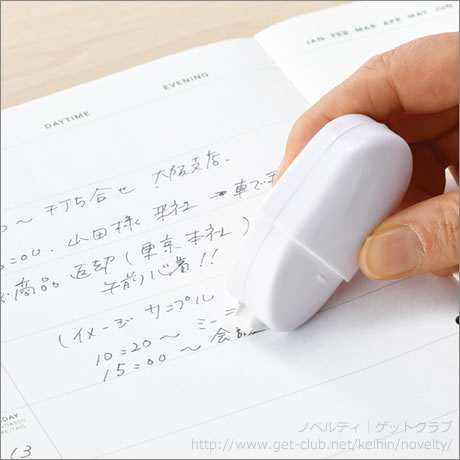 JAN FEB MAR APR MAY JUN
DAYTIME EVENING
〜 打ち合せ 大阪支店.
:00. 山田様 来社 車で
商品 返却 (東京本社)
午前必着!!
(イメージ サンプル
10:20〜 ミー
15:00〜 会
DAY
13
ノベルティ｜ゲットクラブ
http://www.get-club.net/keihin/novelty/